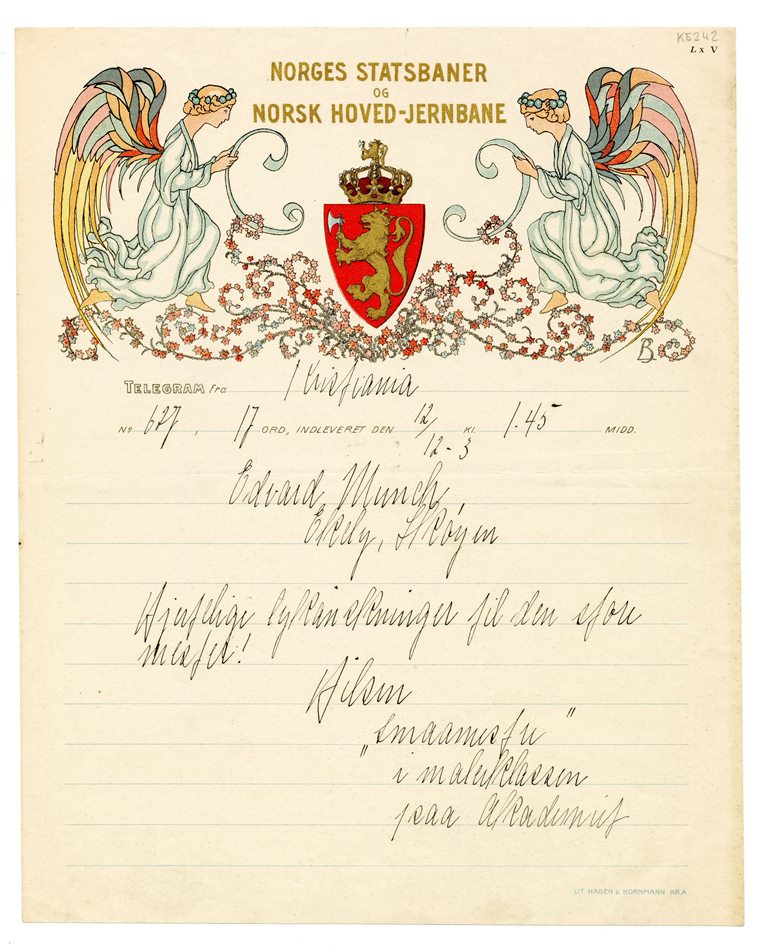 K5242
Lx V
NORGES STATSBANER
OG
NORSK HOVED-JERNBANE
B
TELEGRAM fra Kristiania
No 627, 17 ORD, INDLEVERET DEN 12/12-3 Kl. 1.45 MIDD.
Edvard Munch,
Ekely, Skøyen
Hjertelige lykønskninger til den store
mester!
Hilsen
"smaamestre"
i malerklassen
paa Akademiet
LIT. HAGEN & KORNMANN KR.A